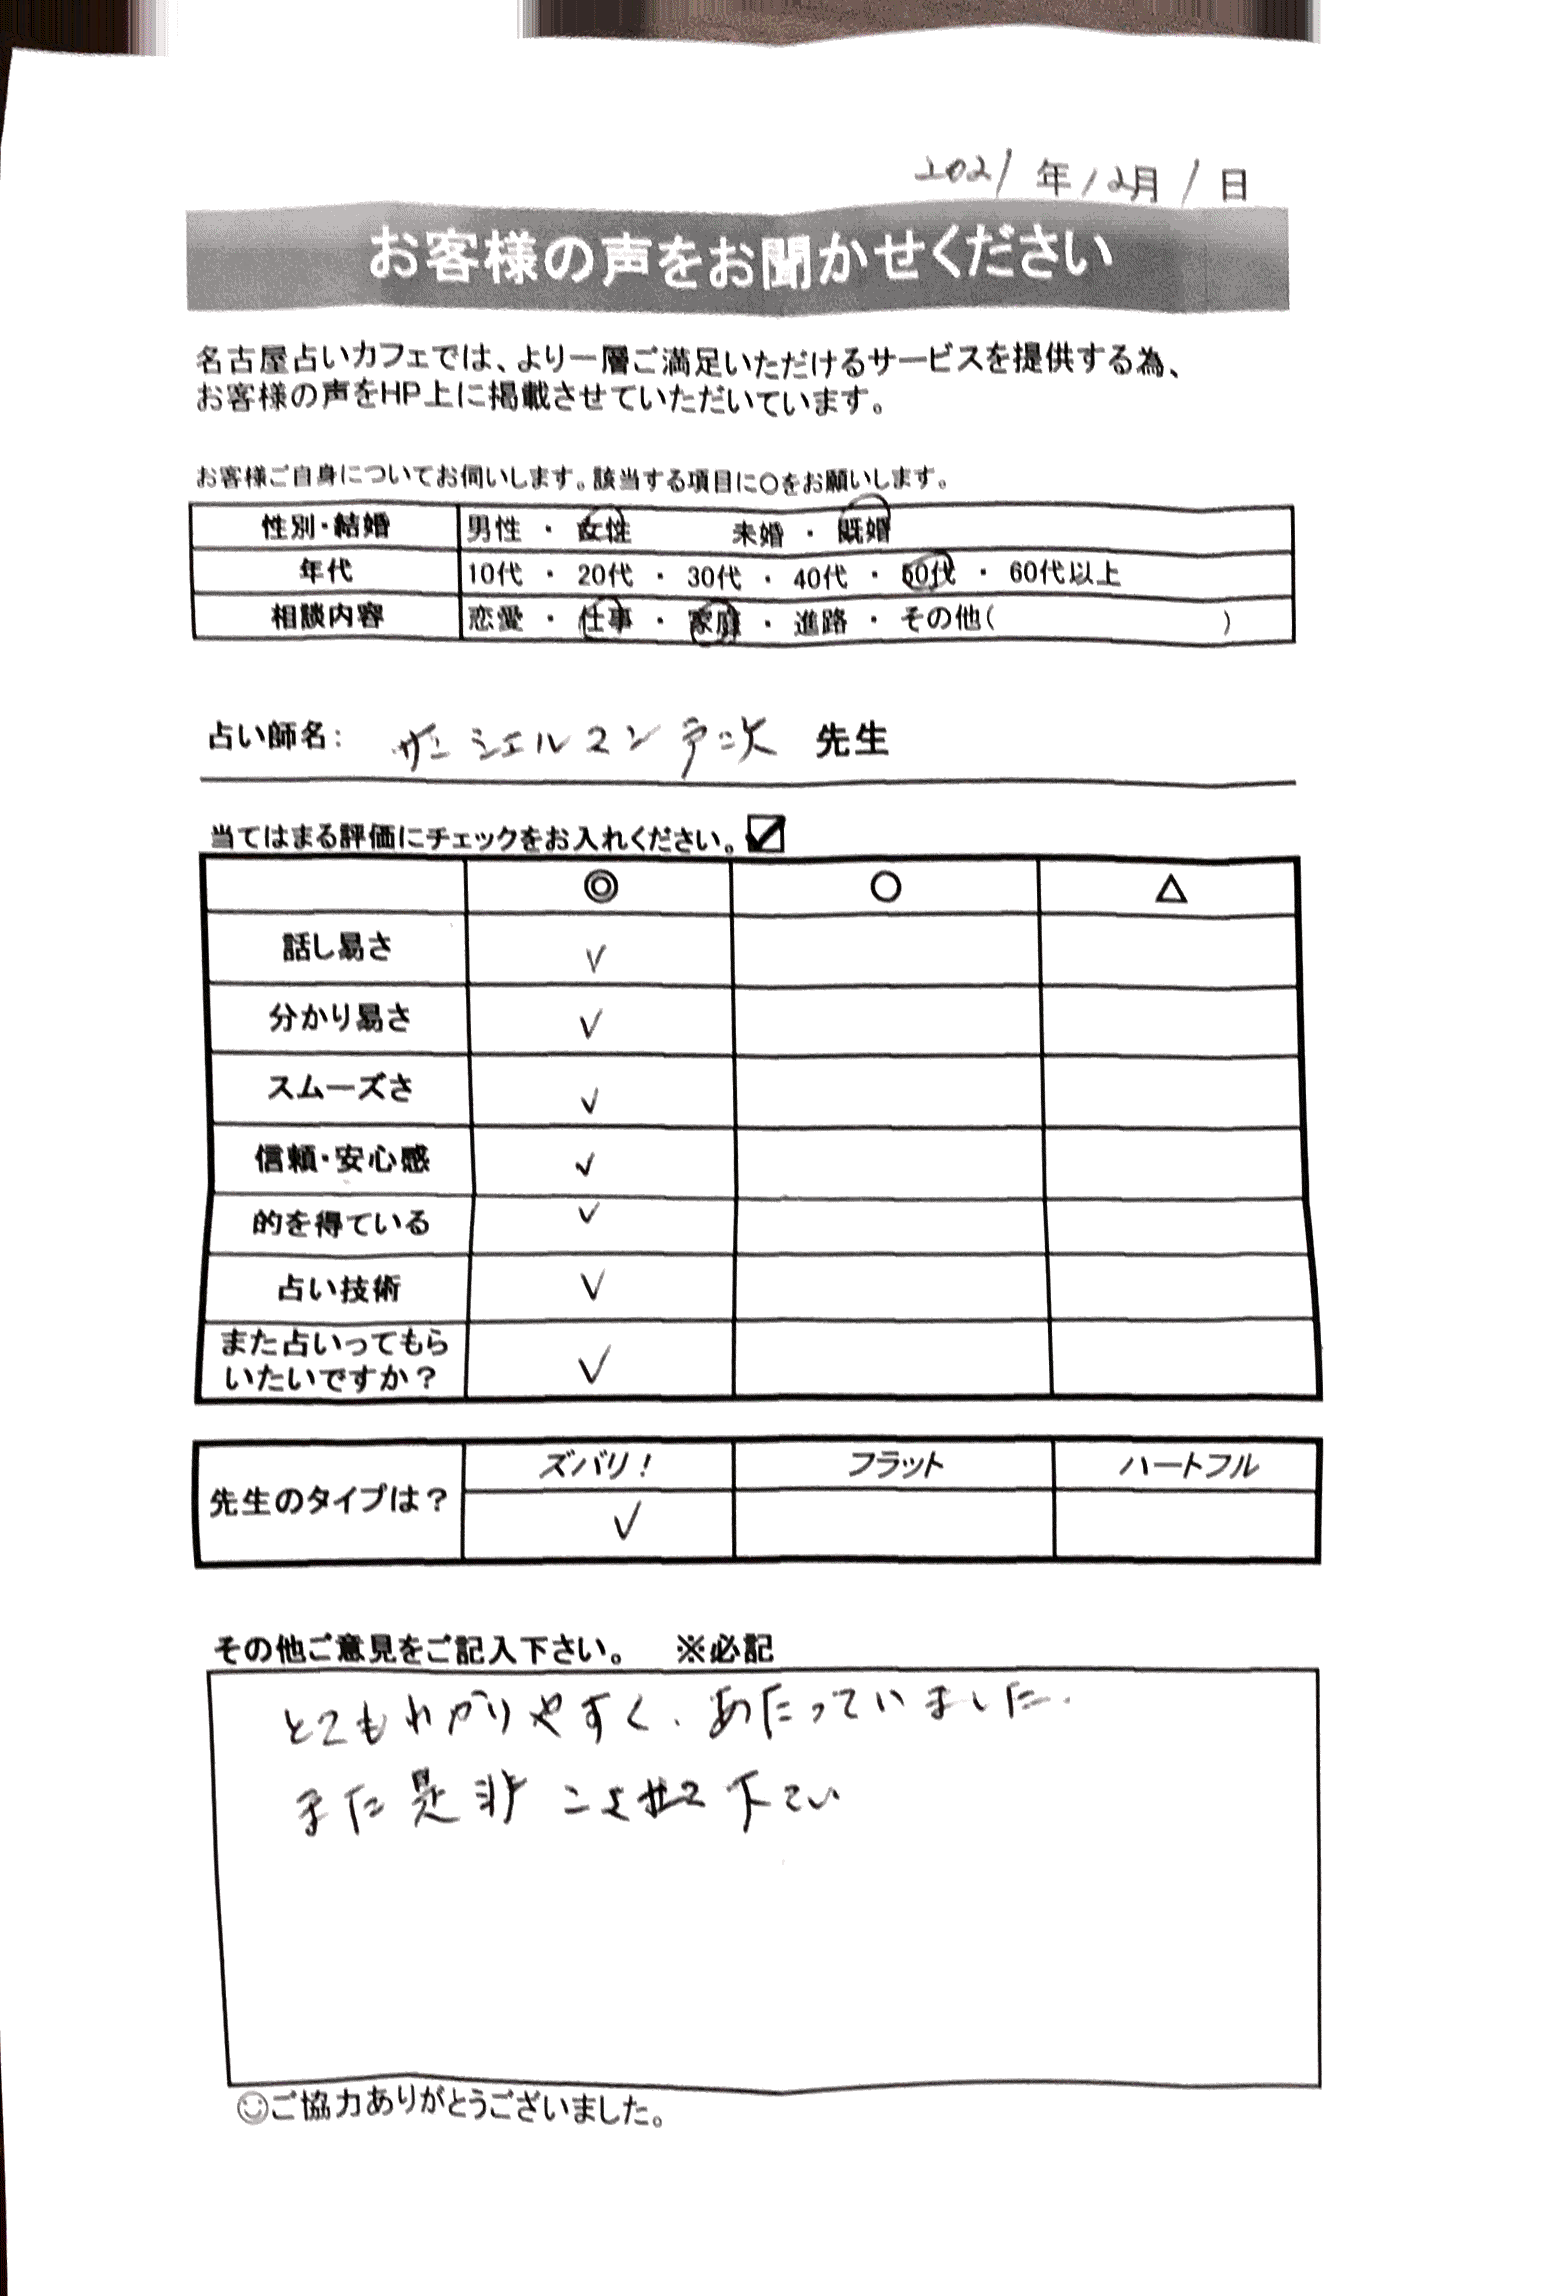 2021年12月1日
お客様の声をお聞かせください
名古屋占いカフェでは、より一層ご満足いただけるサービスを提供する為、
お客様の声をHP上に掲載させていただいています。
お客様ご自身についてお伺いします。該当する項目に○をお願いします。
性別・結婚 男性 ・ 女性 未婚 ・ 既婚
年代 10代 ・ 20代 ・ 30代 ・ 40代 ・ 50代 ・ 60代以上
相談内容 恋愛 ・ 仕事 ・ 家庭 ・ 進路 ・ その他( )
占い師名: シエル 先生
当てはまる評価にチェックをお入れください。☑
◎ ○ △
話し易さ ✓
分かり易さ ✓
スムーズさ ✓
信頼・安心感 ✓
的を得ている ✓
占い技術 ✓
また占いってもら
いたいですか? ✓
ズバリ! フラット ハートフル
先生のタイプは? ✓
その他ご意見をご記入下さい。 ※必記
とてもわかりやすく、あたっていました.
また是非こさせて下さい
ご協力ありがとうございました。